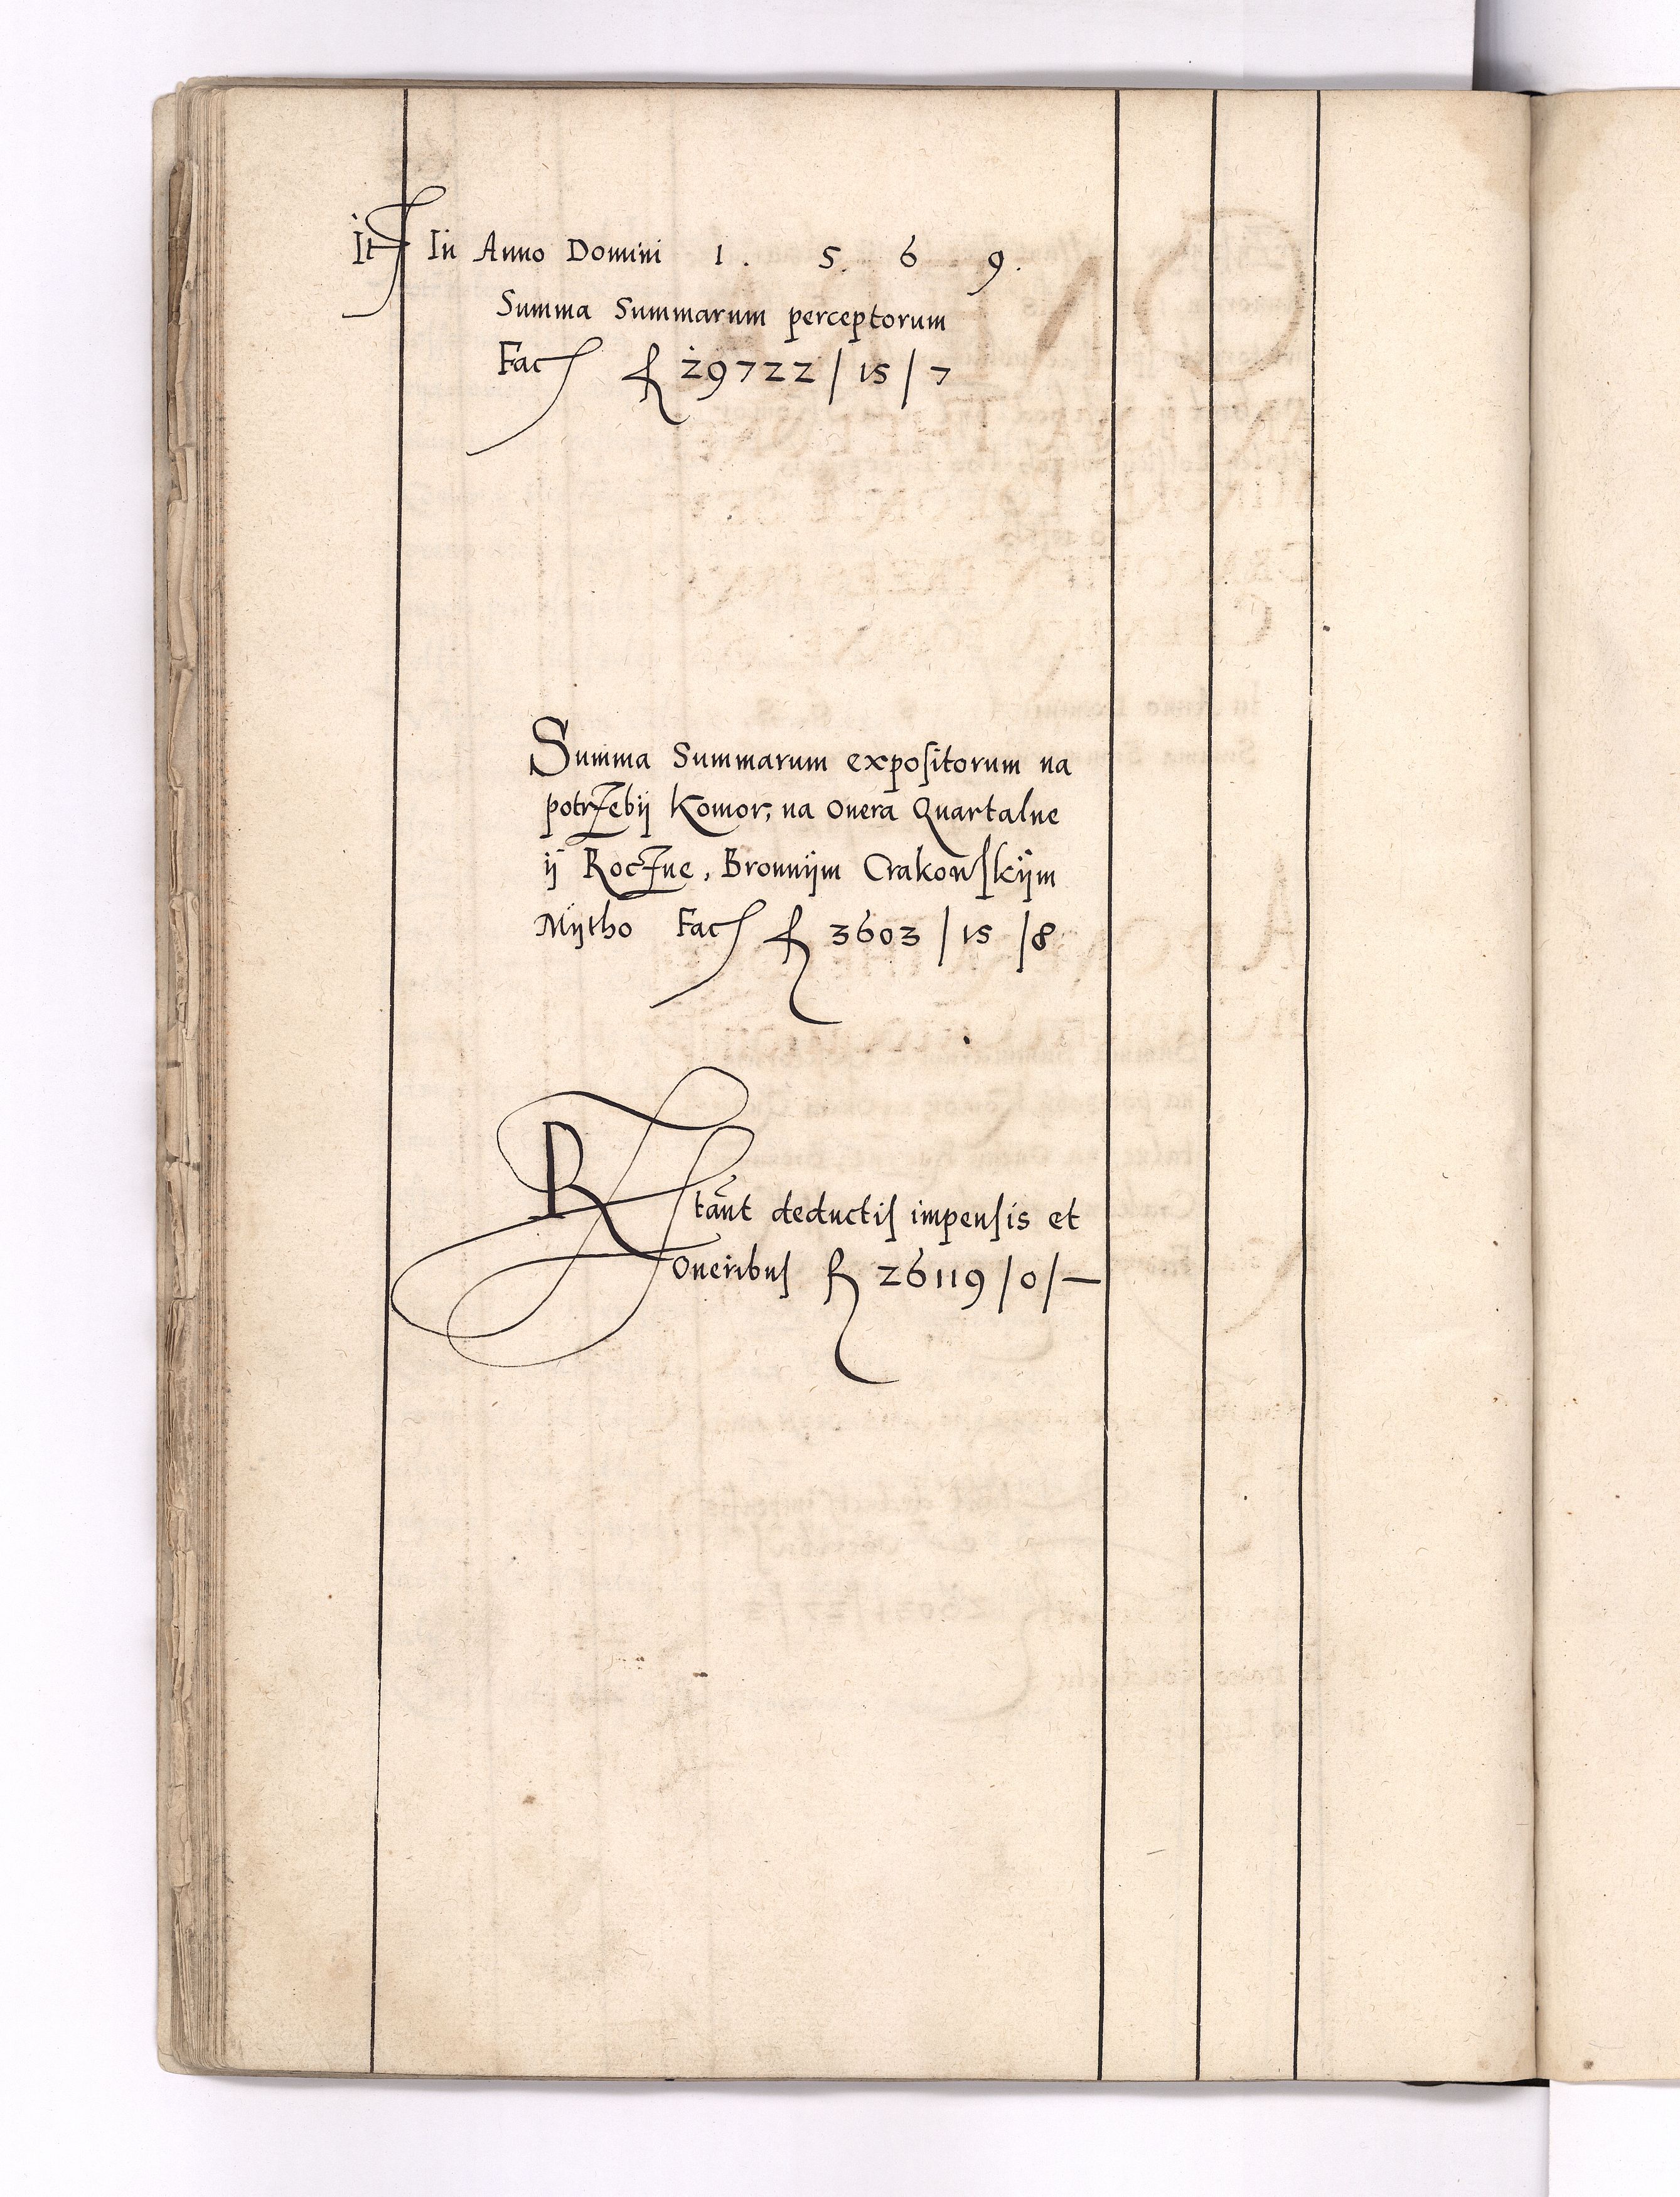 It In Anno Domini 1. 5. 6 9.
Summa Summarum perceptorum
Fac f 29722 / 15 / 7
Summa Summarum expositorum na
potrzebÿ Komor, na Onera Quartalne
ÿ Roczne, Brounÿm Crakowskÿm
Mÿtho Fac f 3603 / 15 / 8
Rstant deductis impensis et
Oneribus f 26119 / 0 / —